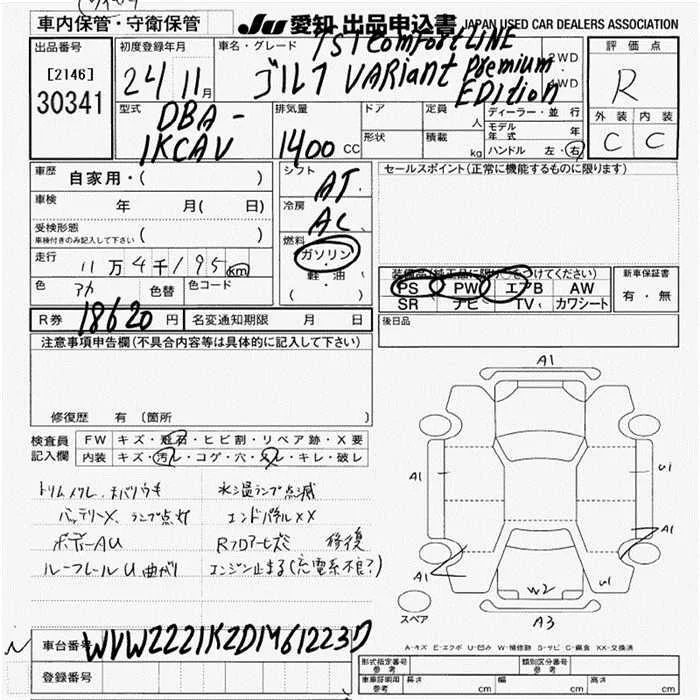 車内保管・守衛保管
JU 愛知 出品申込書 JAPAN USED CAR DEALERS ASSOCIATION
出品番号
[2146]
30341
初度登録年月
24 11月
車名・グレード
TSI Comfort LINE
ゴルフ VARiant Premium EDItion
2WD
・
4WD
評価点
R
外装 内装
C C
型式
DBA-
1KCAV
排気量
1400 CC
ドア
形状
定員
人
積載
kg
ディーラー・並行
モデル年式 年
ハンドル 左・右
車歴 自家用・( )
車検 年 月( 日)
受検形態
車検付きのみ記入して下さい ( )
走行 11万4千195km
色 アカ 色替 色コード
R券 18620円 名変通知期限 月 日
シフト
AT
冷房
AC
燃料
ガソリン
・
軽油
( )
セールスポイント(正常に機能するものに限ります)
装備品(純正品に限り○をつけてください)
PS PW エアB AW
SR ナビ TV カワシート
新車保証書
有・無
後日品
注意事項申告欄(不具合内容等は具体的に記入して下さい)
修復歴 有 〔箇所 〕
検査員記入欄
FW キズ・飛石・ヒビ割・リペア跡・X要
内装 キズ・汚レ・コゲ・穴・スレ・キレ・破レ
トリムメクレ
バッテリーX、ランプ点灯
ボデーAU
ルーフレールU曲がり
水温ランプ点滅
エンドパネルXX
修復
エンジン止まる(充電系不良?)
A1
A1
U1
A1
A1
W2
U1
A3
スペア
A-キズ E-エクボ U-凹み W-補修跡 S-サビ C-腐食 XX-交換済
車台番号 WVWZZZ1KZDM61223D
登録番号
形式指定番号 参考
類別区分番号 参考
車庫証明用 参考 長さ cm 幅 cm 高さ cm